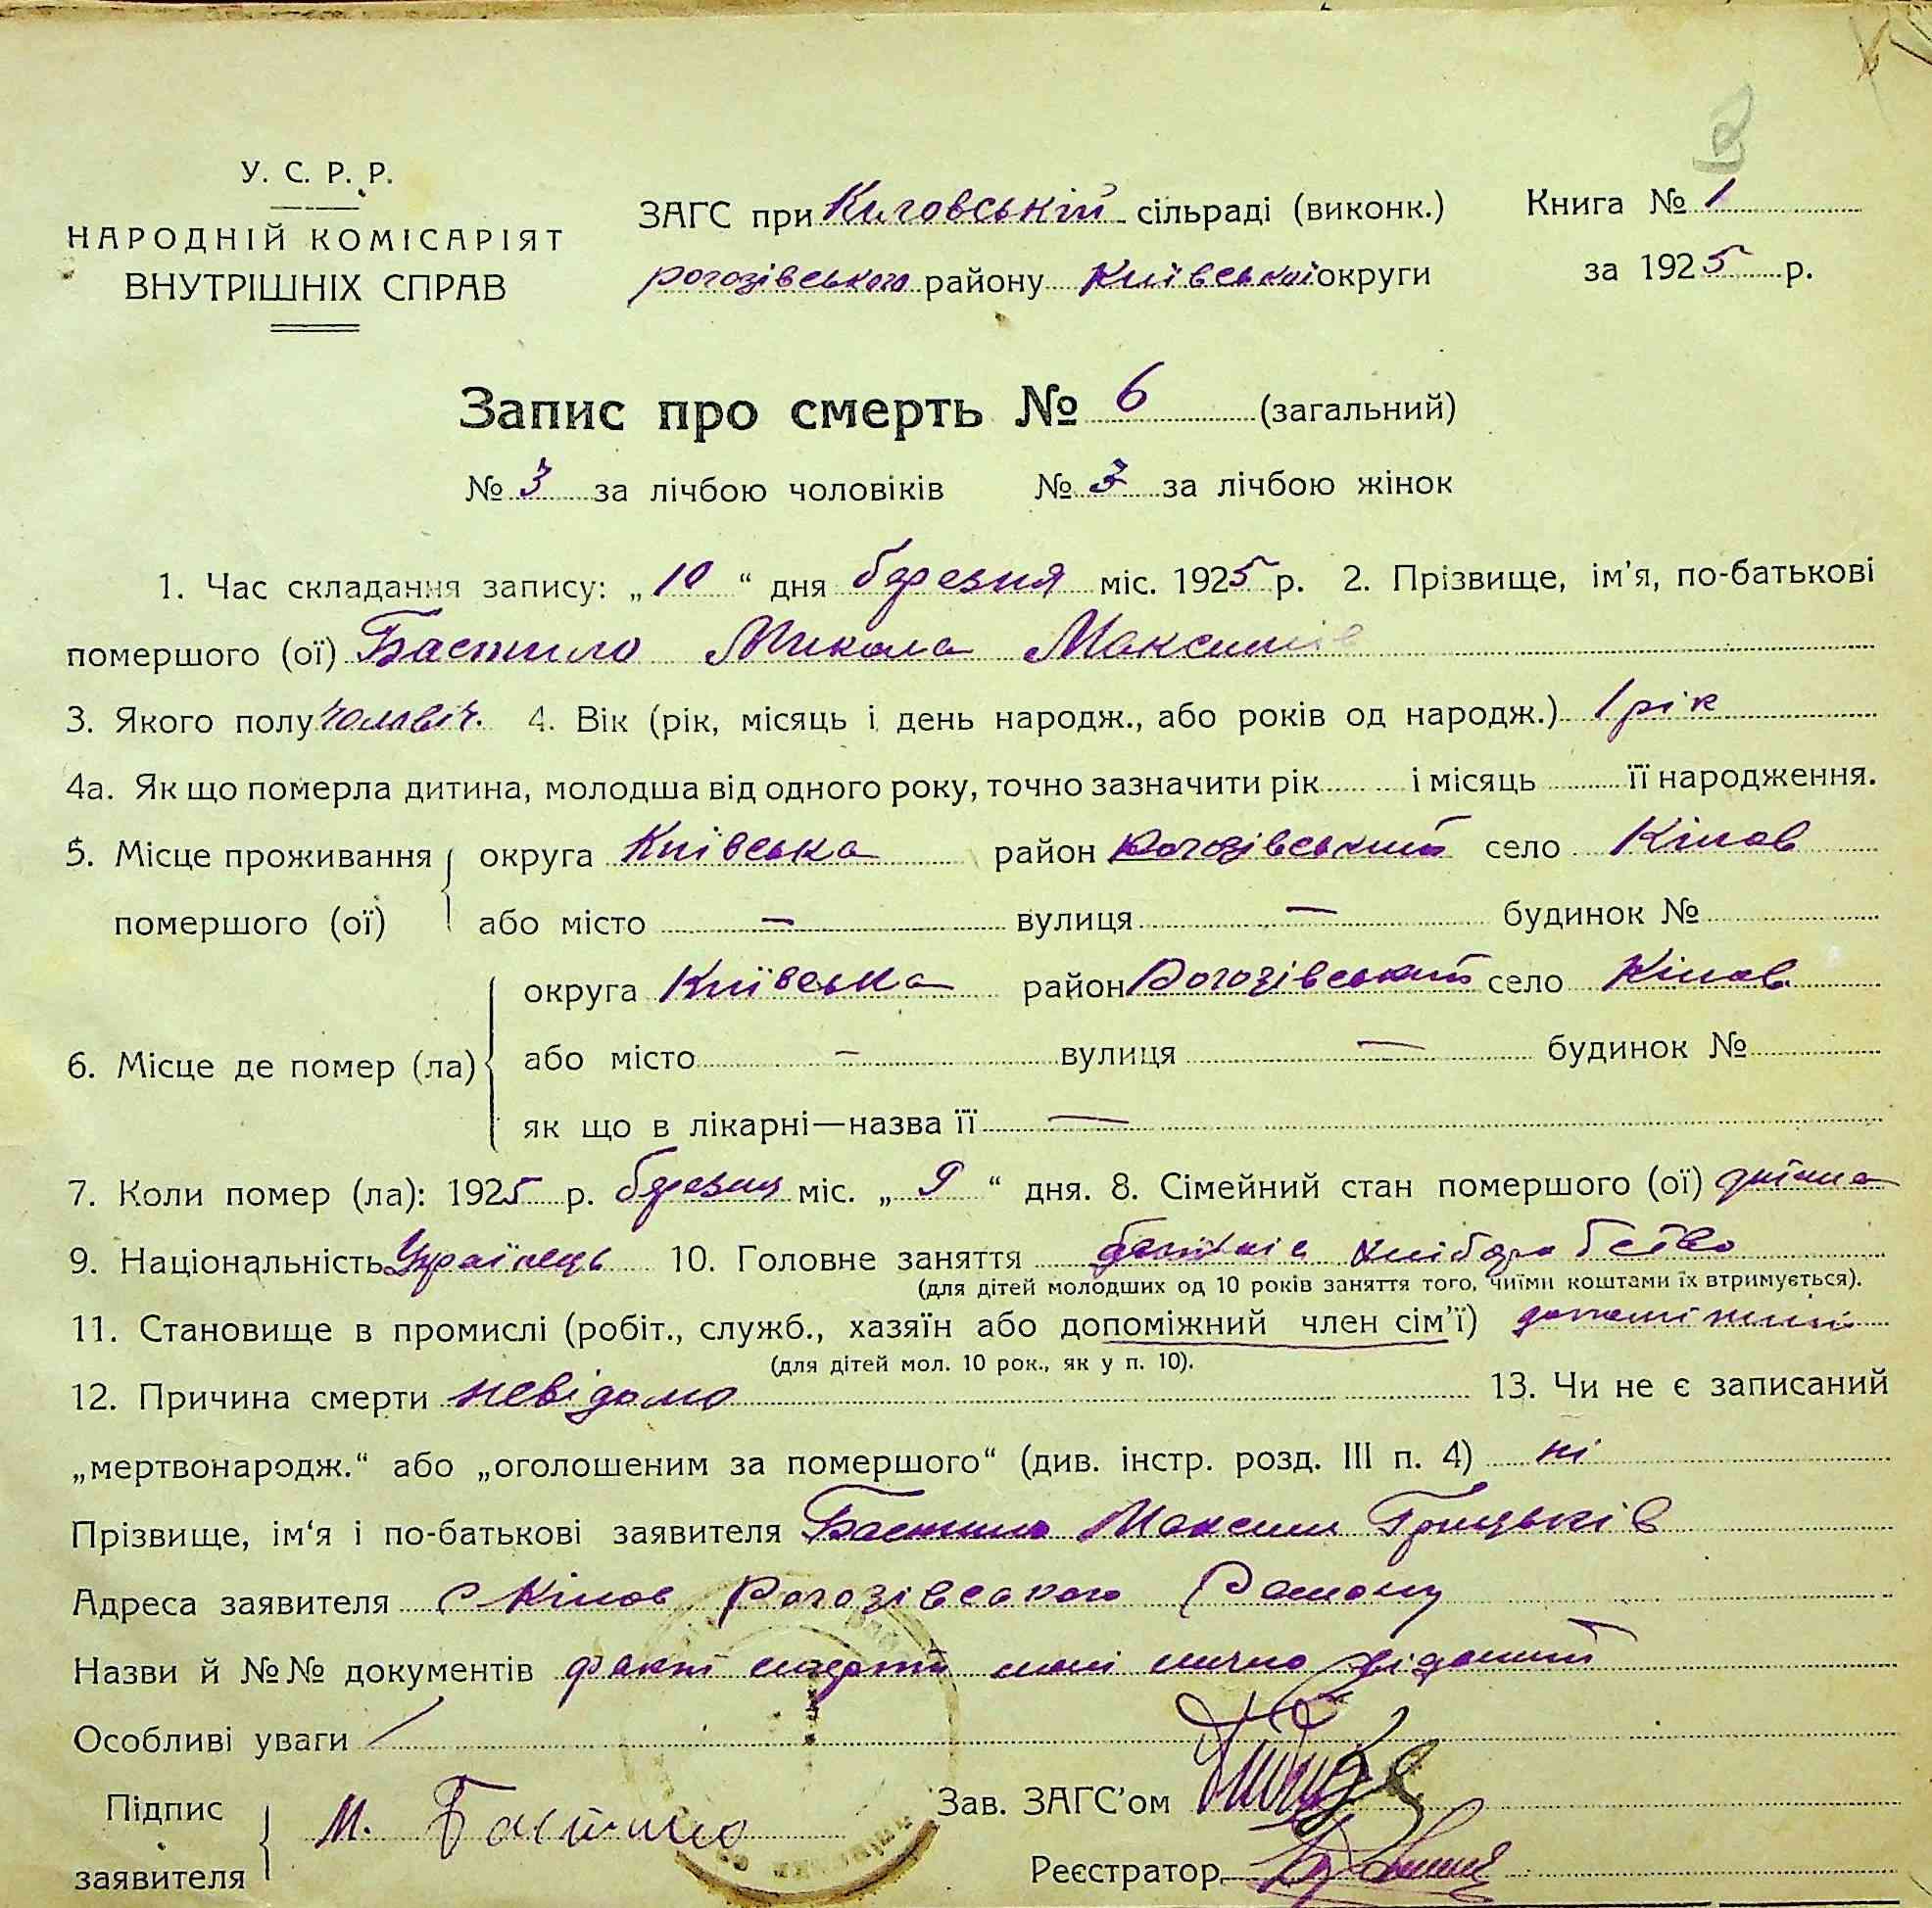 У. С. Р. Р.
НАРОДНІЙ КОМІСАРІЯТ
ВНУТРІШНІХ СПРАВ
ЗАГС при Київській сільраді (виконк.)
рогозівського району Київської округи
Книга № 1
за 1925 р.
Запис про смерть № 6 (загальний)
№ 3 за лічбою чоловіків № 3 за лічбою жінок
1. Час складання запису: „10“ дня березня міс. 1925 р. 2. Прізвище, ім'я, по-батькові
помершого (ої) Бастило Микола Максимів
3. Якого полу чоловіч. 4. Вік (рік, місяць і день народж., або років од народж.) 1 рік
4а. Як що померла дитина, молодша від одного року, точно зазначити рік і місяць її народження.
5. Місце проживання округа Київська район Рогозівський село Кілов
помершого (ої) або місто — вулиця — будинок №
округа Київська район Рогозівський село Кілов
6. Місце де помер (ла) або місто — вулиця — будинок №
як що в лікарні—назва її —
7. Коли помер (ла): 1925 р. березня міс. „9“ дня. 8. Сімейний стан помершого (ої) дитина
9. Національність Українець 10. Головне заняття хліборобство
(для дітей молодших од 10 років заняття того, чиїми коштами їх втримується).
11. Становище в промислі (робіт., служб., хазяїн або допоміжний член сім'ї) допоміжний
(для дітей мол. 10 рок., як у п. 10).
12. Причина смерти невідомо 13. Чи не є записаний
„мертвонародж.“ або „оголошеним за помершого“ (див. інстр. розд. III п. 4) ні
Прізвище, ім'я і по-батькові заявителя Бастило Максим Грицьків
Адреса заявителя с Кілов Рогозівського Району
Назви й №№ документів факт смерти мені лично відомий
Особливі уваги
Підпис
заявителя М. Бастило
Зав. ЗАГС'ом
Реєстратор